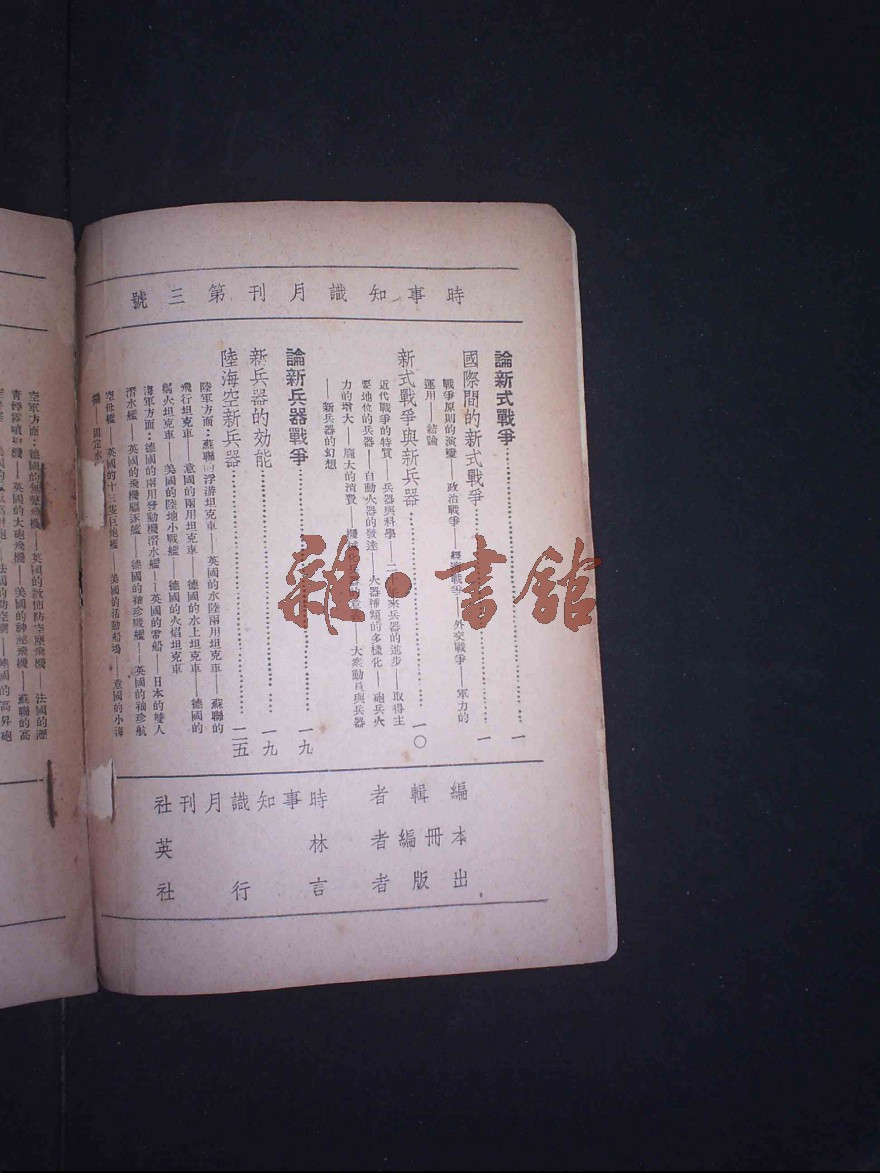 時事知識月刊第三號
論新式戰爭……一
國際間的新式戰爭……一
戰爭原則的演變——政治戰爭——經濟戰爭——外交戰爭——軍力的
運用——結論
新式戰爭與新兵器……一〇
近代戰爭的特質——兵器與科學——二十年來兵器的進步——取得主
要地位的兵器——自動火器的發達——火器種類的多樣化——砲兵火
力的增大——龐大的消費——機械化——大衆動員與兵器
——新兵器的幻想
論新兵器戰爭……一九
新兵器的効能……一九
陸海空新兵器……二五
陸軍方面：蘇聯的浮游坦克車——英國的水陸兩用坦克車——蘇聯的
飛行坦克車——意國的兩用坦克車——德國的水上坦克車——德國的
噴火坦克車——美國的陸地小戰艦——德國的火焰坦克車
海軍方面：德國的兩用發動機潛水艦——英國的雷船——日本的雙人
潛水艦——英國的飛機驅逐艦——德國的袖珍戰艦——英國的袖珍航
空母艦——英國的十三隻巨砲艦——美國的活動船塲——意國的小海
——固定水
編輯者 時事知識月刊社
本冊編者 林英
出版者 言行社
空軍方面：德國的無聲飛機——英國的散佈防空塵飛機——法國的瀝
青煙霧噴射機——英國的大砲飛機——美國的神經飛機——蘇聯的高
法國的防空網——德國的高昇砲
雜·書館